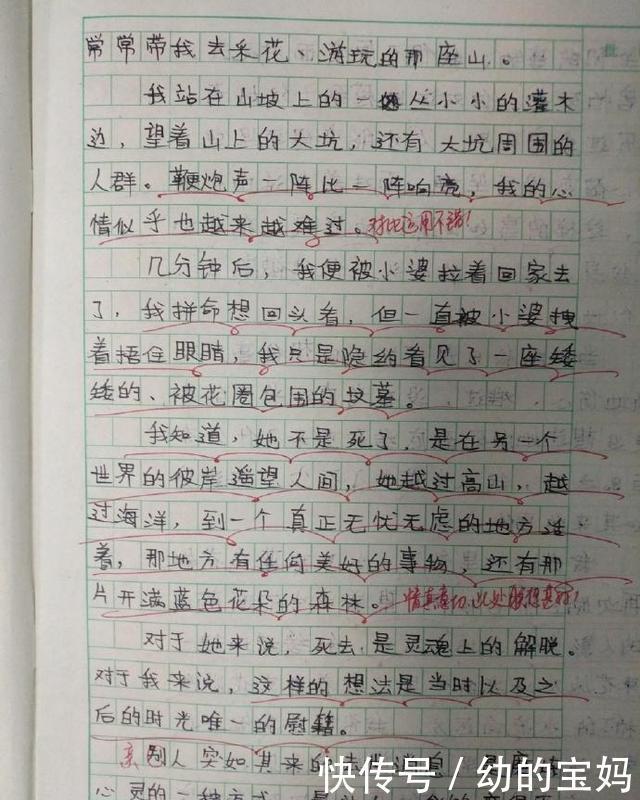 常常带我去采花、游玩的那座山。
我站在山坡上的一丛小小的灌木
边，望着山上的大坑，还有大坑周围的
人群。鞭炮声一阵比一阵响亮，我的心
情似乎也越来越难过。对比运用不错！
几分钟后，我便被小婆拉着回家去
了，我拼命想回头看，但一直被小婆拽
着捂住眼睛，我只是隐约看见了一座矮
矮的、被花圈包围的坟墓。
我知道，她不是死了，是在另一个
世界的彼岸遥望人间，她越过高山，越
过海洋，到一个真正无忧无虑的地方活
着，那地方有任何美好的事物，还有那
片开满蓝色花朵的森林。情真意切，此处联想甚好！
对于她来说，死去是灵魂上的解脱。
对于我来说，这样的想法是当时以及之
后的时光唯一的慰籍。
亲别人突如其来的去世消息
心灵的一种方式
快传号 / 幼的宝妈